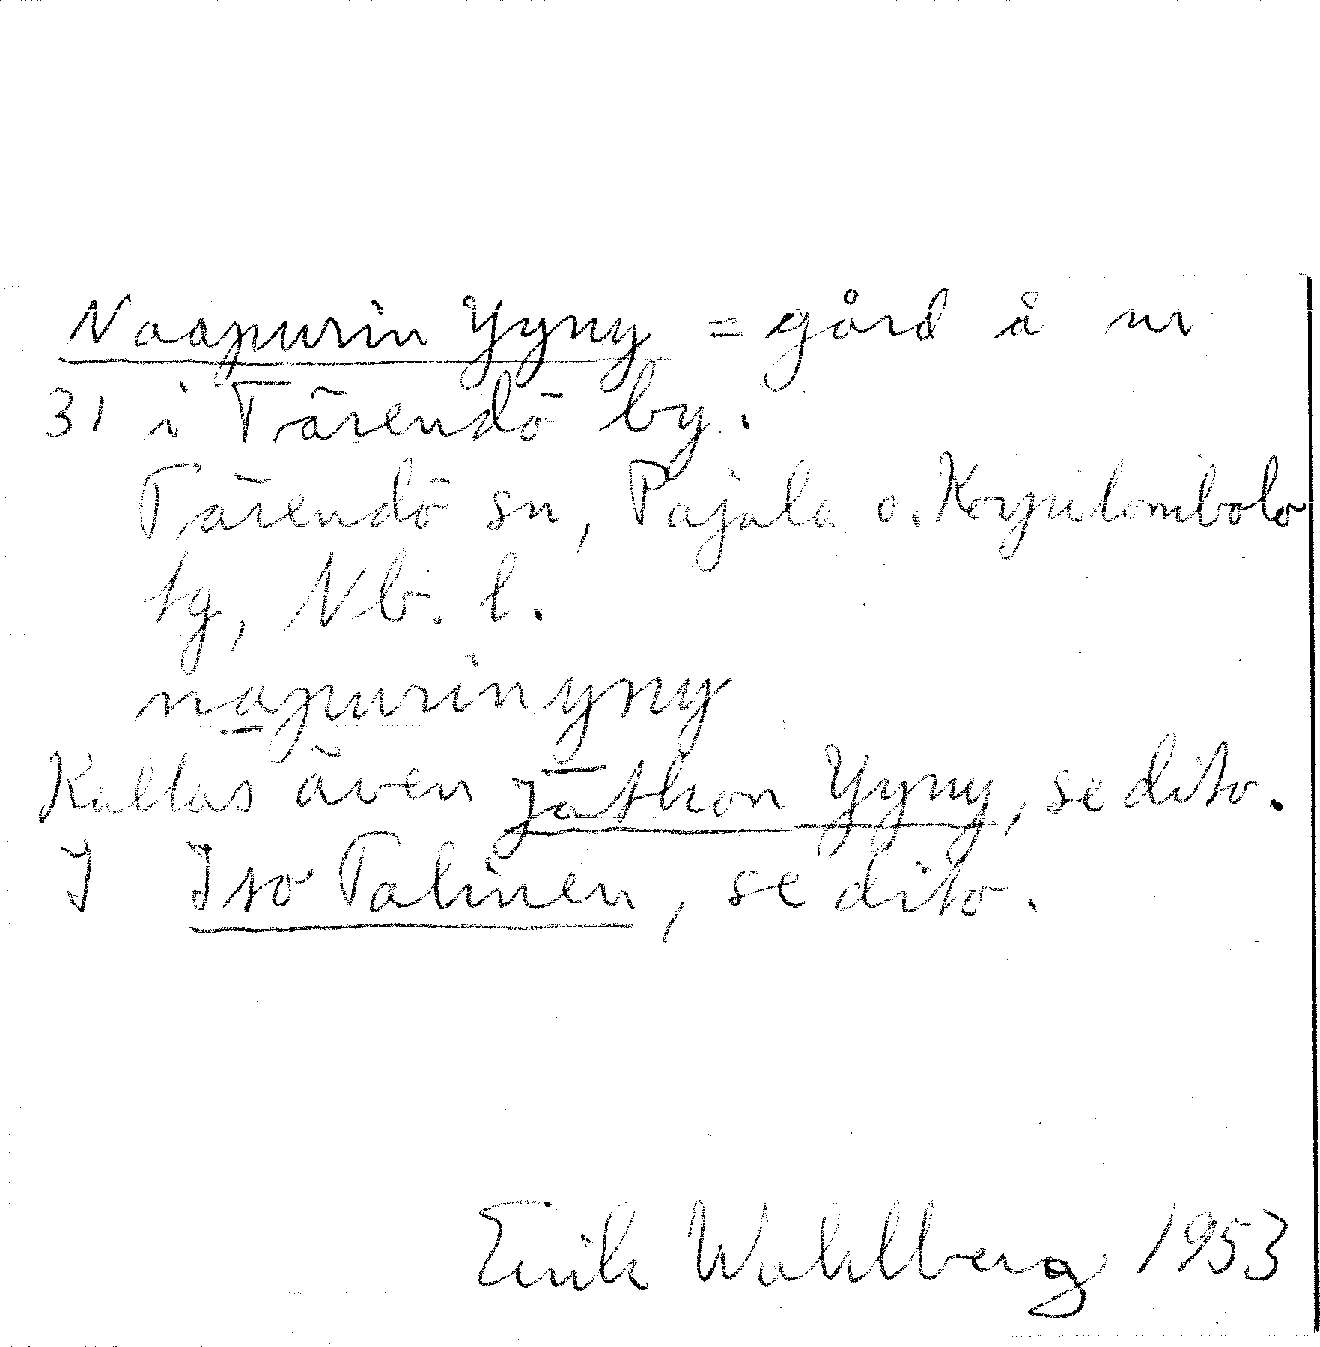 Naapurin Yyny = gård å nr
31 i Tärendö by.
Tärendö sn, Pajala o. Korpilombolo
tg, Nb. l.
nāpurinyny
Kallas även Jāthon Yyny, se dito.
I Iso Palinen, se dito.
Erik Wahlberg 1953